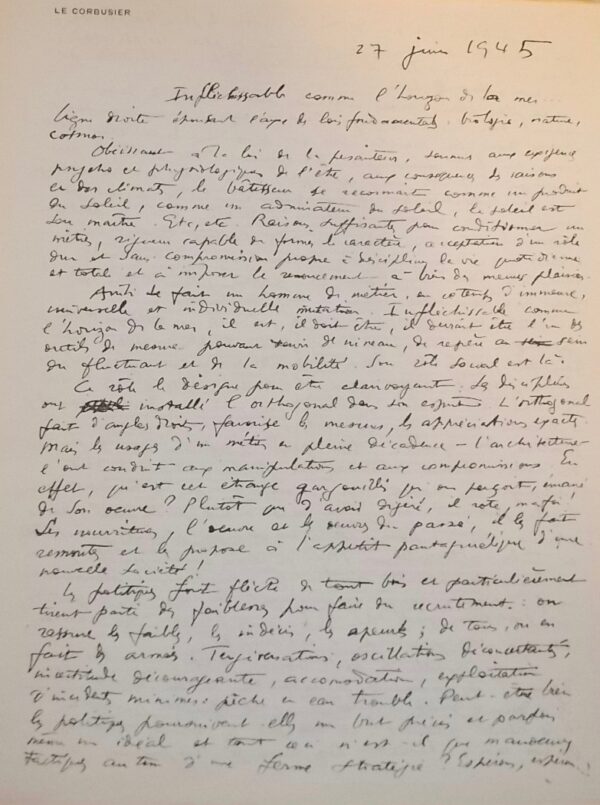 LE CORBUSIER
27 juin 1945
Infléchissable comme l'horizon de la mer...
ligne droite épousant l'axe des lois fondamentales : biologie, nature,
cosmos.
Obéissant à la loi de la pesanteur, soumis aux exigences
psycho et physiologiques de l'être, aux conséquences des saisons
et des climats, le bâtisseur se reconnaîtra comme un produit
du soleil, comme un admirateur du soleil, le soleil est
son maître. Etc, etc. Raisons suffisantes pour conditionner un
métier, rigueur capable de former le caractère, acceptation d'un rôle
dur et sans compromission propre à discipliner la vie quotidienne
et total et à imposer le renoncement à bien des menus plaisirs.
Ainsi se fait un homme de métier, en contenu d'immense,
universelle et individuelle mutation. Infléchissable comme
l'horizon de la mer, il est, il doit être, il devrait être l'un des
outils de mesure pouvant servir de niveau, de repère au sein
du fluctuant et de la mobilité. Son rôle social est là.
Ce rôle le désigne pour être clairvoyant. Ses disciplines
ont installé l'orthogonal dans son esprit. L'orthogonal
fait d'angles droits, favorise les mesures, les appréciations exactes.
Mais les usages d'un métier en pleine décadence – l'architecture
l'ont conduit aux manipulations et aux compromissions. En
effet, qu'est cet étrange gargouillis qui on perçoit, émané
de son oeuvre? Plutôt que d'avoir digéré, il rote, ma foi!
Ses nourritures, l'oeuvre et les oeuvres du passé, il les fait
remonter et les propose à l'appétit pantagruélique d'une
nouvelle société!
Les politiques font flèche de tout bois et particulièrement
tirent parti des faiblesses pour faire du recrutement : on
rassure les faibles, les indécis, les apeurés; de tous, on en
fait des armées. Tergiversations, oscillations déconcertantes,
incertitude décourageante, accomodation, exploitation
d'incidents minimes : pêche en eau trouble. Peut-être bien
les politiques poursuivent-elles un but précis et parfois
même un idéal et tout ceci n'est-il que manoeuvres
tactiques au sein d'une ferme stratégie? Espérons, espérons